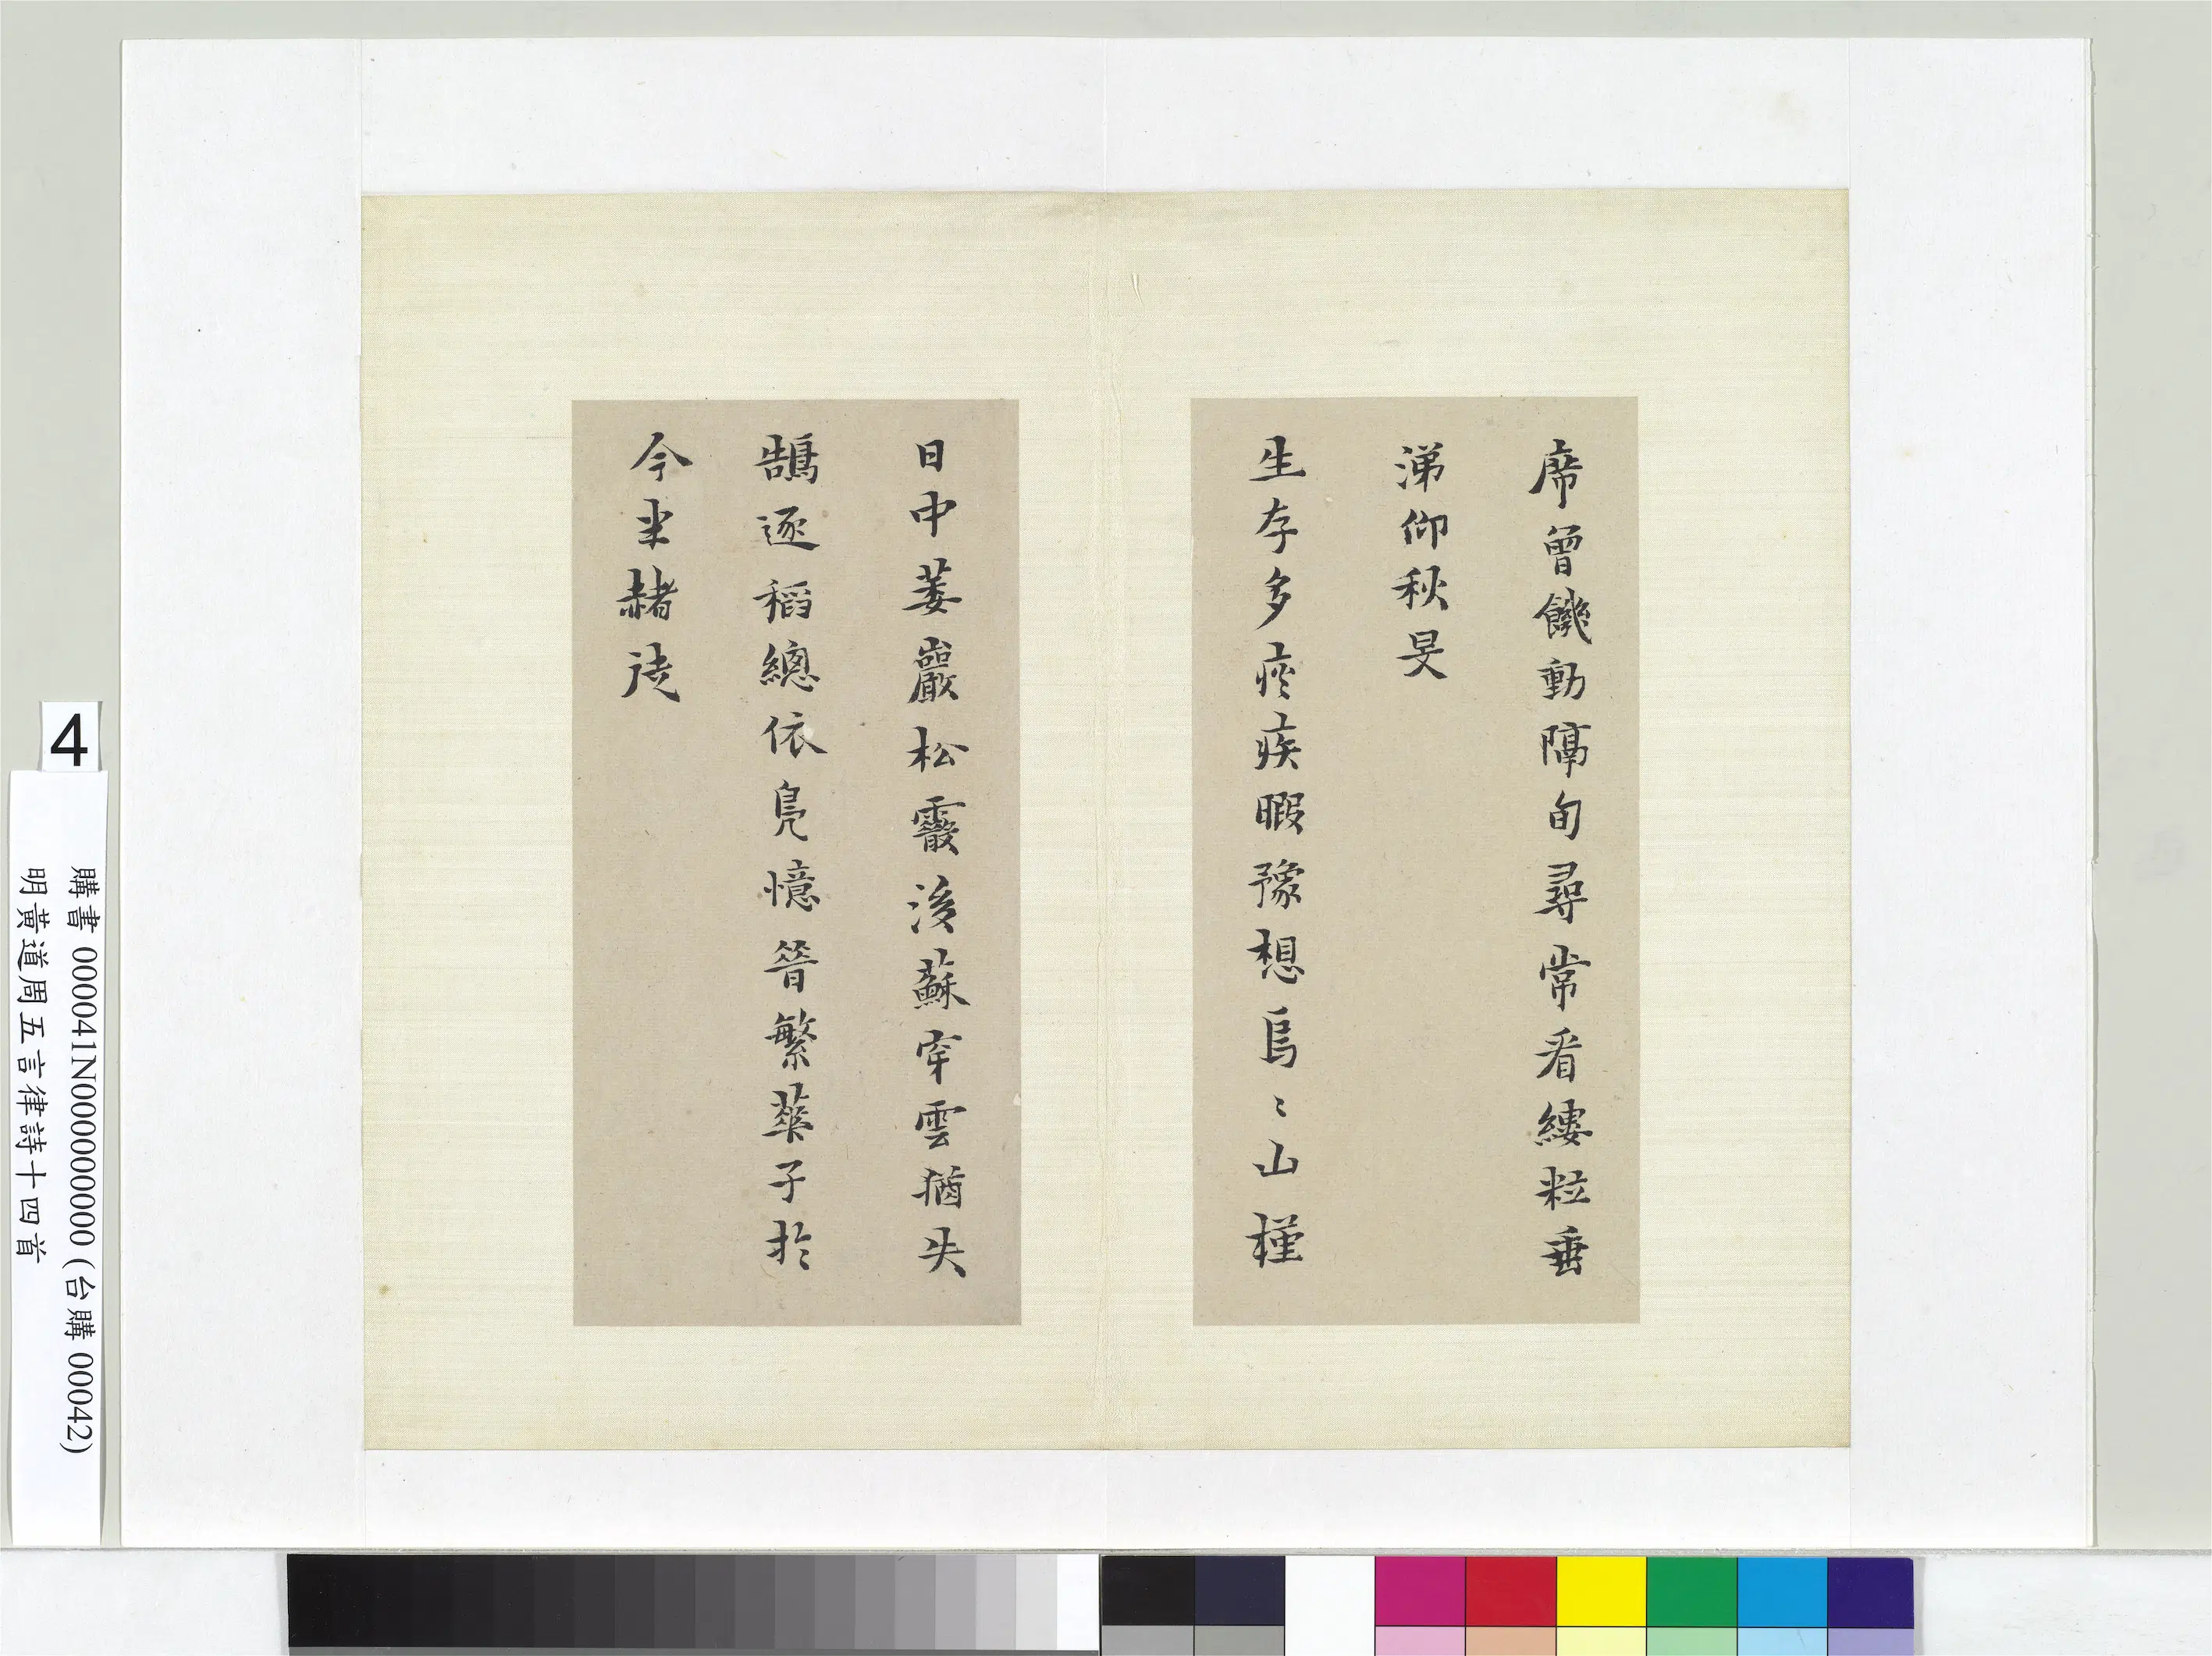 席曾饑動隔旬尋常看縷粒垂
涕仰秋旻
生存多疢疾暇豫想烏〻山槿
日中萎巖松霰後蘇宰雲猶失
鵠逐稻總依鳧憶昔繁華子於
今半赭徒
4
購書 000041N000000000 (台購 00042)
明黃道周五言律詩十四首